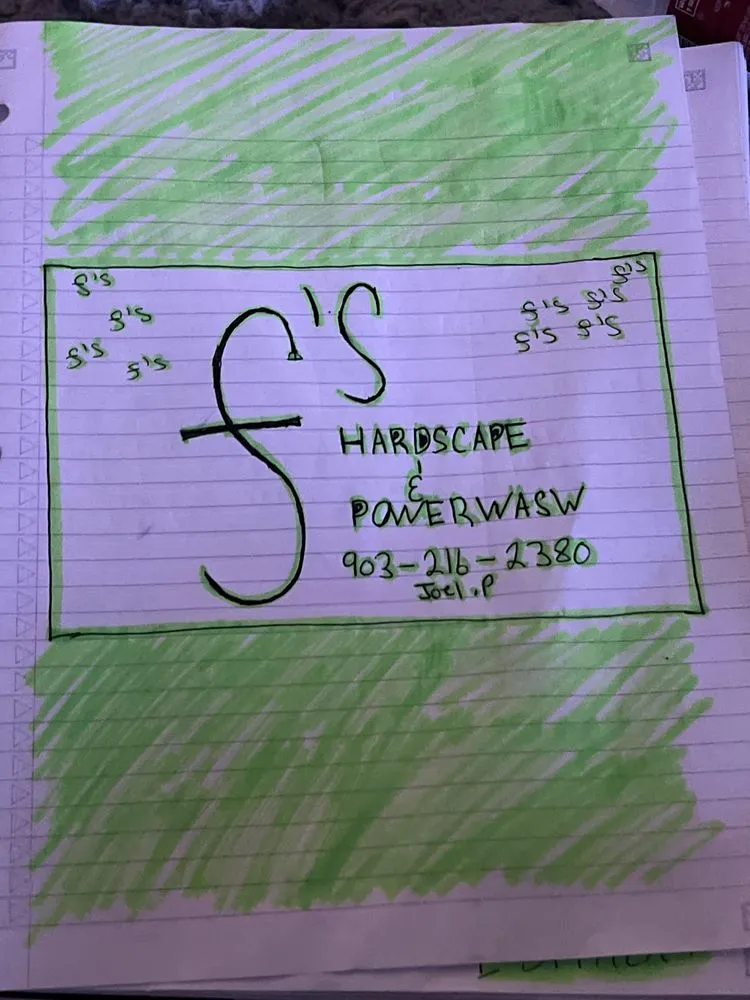 f's
f's
f's
f's
f's
f's f's
f's f's
f's
HARDSCAPE
&
POWERWASW
903-216-2380
Joel.P